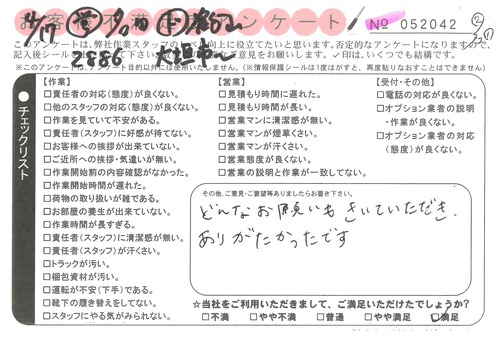 お客様不満足アンケート № 052042
このアンケートは、弊社作業スタッフの
向上に役立てたいと思います。否定的なアンケートになりますので、
記入後シール
ご意見をお願いします。✓印は、いくつでも結構です。
※このアンケートは、アンケート目的以外には使用いたしません。（※情報保護シールは1度はがすと、再度貼りなおすことはできません）
4/17
2886 大垣市
チェックリスト
【作業】
□責任者の対応(態度)が良くない。
□他のスタッフの対応(態度)が良くない。
□作業を見ていて不安がある。
□責任者(スタッフ)に好感が持てない。
□お客様への挨拶が出来ていない。
□ご近所への挨拶・気遣いが無い。
□作業開始前の内容確認がなかった。
□作業開始時間が遅れた。
□荷物の取り扱いが雑である。
□お部屋の養生が出来ていない。
□作業時間が長すぎる。
□責任者(スタッフ)に清潔感が無い。
□責任者(スタッフ)が汗くさい。
□トラックが汚い。
□梱包資材が汚い。
□運転が不安(下手)である。
□靴下の履き替えをしてない。
□スタッフにやる気がみられない。
【営業】
□見積もり時間に遅れた。
□見積もり時間が長い。
□営業マンに清潔感が無い。
□営業マンが煙草くさい。
□営業マンが汗くさい。
□営業態度が良くない。
□営業の説明と作業が一致してない。
【受付・その他】
□電話の対応が良くない。
□オプション業者の説明
・作業が良くない。
□オプション業者の対応
(態度)が良くない。
その他、ご意見・ご要望等ありましたらお書き下さい。
どんなお願いもきいていただき、
ありがたかったです
☆当社をご利用いただきまして、ご満足いただけたでしょうか？
□不満 □やや不満 □普通 □やや満足 ☑満足